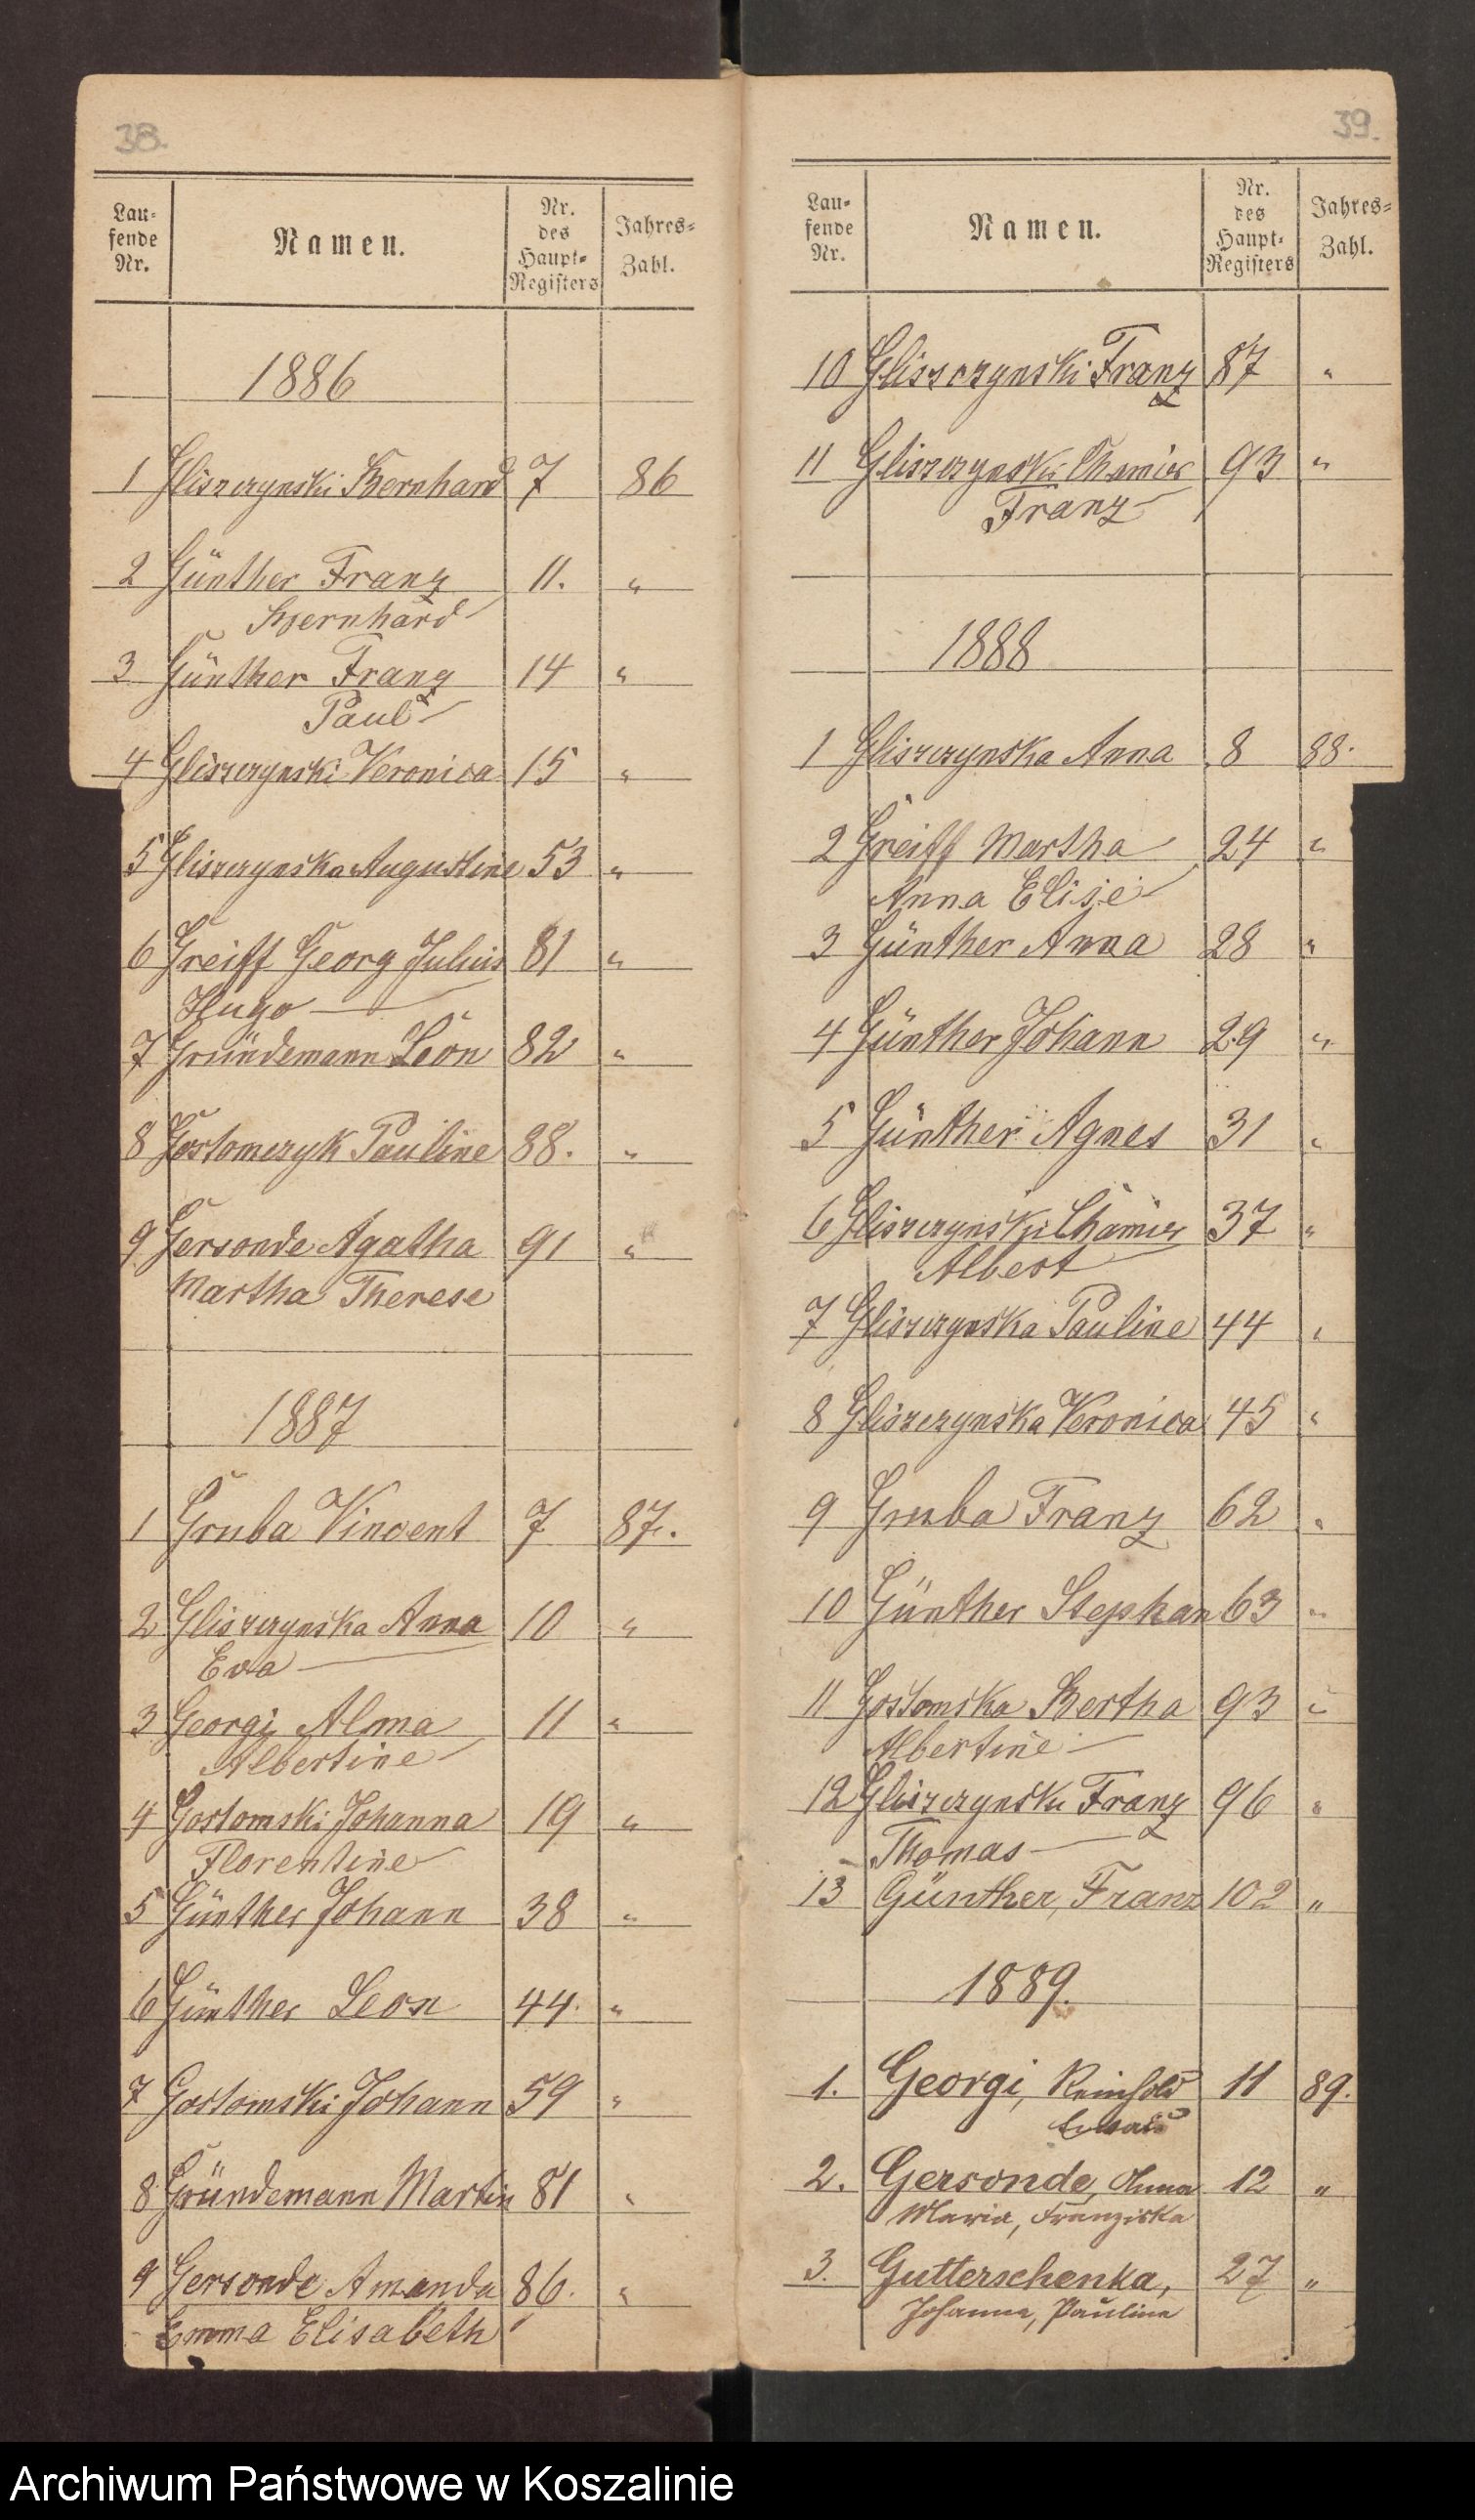 38.
Lau-
fende
Nr.
Namen.
Nr.
des
Haupt-
Registers
Jahres-
Zahl.
1886
1 Gliszczynski Bernhard 7 86
2 Günther Franz 11. "
Bernhard
3 Günther Franz 14 "
Paul
4 Gliszczynski Veronica 15 "
5 Gliszczynska Augustine 53 "
6 Greiff Georg Julius 81 "
Hugo
7 Gründemann Leon 82 "
8 Gostomczyk Pauline 88. "
9 Gersonde Agatha 91 "
Martha Therese
1887
1 Gruba Vincent 7 87.
2 Gliszczynska Anna 10 "
Eva
3 Georgi Alma 11 "
Albertine
4 Gostomski Johanna 19 "
Florentine
5 Günther Johann 38 "
6 Günther Leon 44. "
7 Gostomski Johann 59 "
8 Gründemann Martin 81 "
9 Gersonde Amanda 86. "
Emma Elisabeth
39.
Lau-
fende
Nr.
Namen.
Nr.
des
Haupt-
Registers
Jahres-
Zahl.
10 Gliszczynski Franz 87 "
11 Gliszczynski Chamier 93 "
Franz
1888
1 Gliszczynska Anna 8 88.
2 Greiff Martha 24 "
Anna Elise
3 Günther Anna 28 "
4 Günther Johann 29 "
5 Günther Agnes 31 "
6 Gliszczynski Chamier 37 "
Albert
7 Gliszczynska Pauline 44 "
8 Gliszczynska Veronica 45 "
9 Gruba Franz 62 "
10 Günther Stephan 63 "
11 Gostomska Bertha 93 "
Albertine
12 Gliszczynski Franz 96 "
Thomas
13 Günther, Franz 102 "
1889.
1. Georgi, Reinhold 11 89.
2. Gersonde, Anna 12 "
Maria, Franziska
3. Gutterschenka, 27 "
Johanna, Pauline
Archiwum Państwowe w Koszalinie